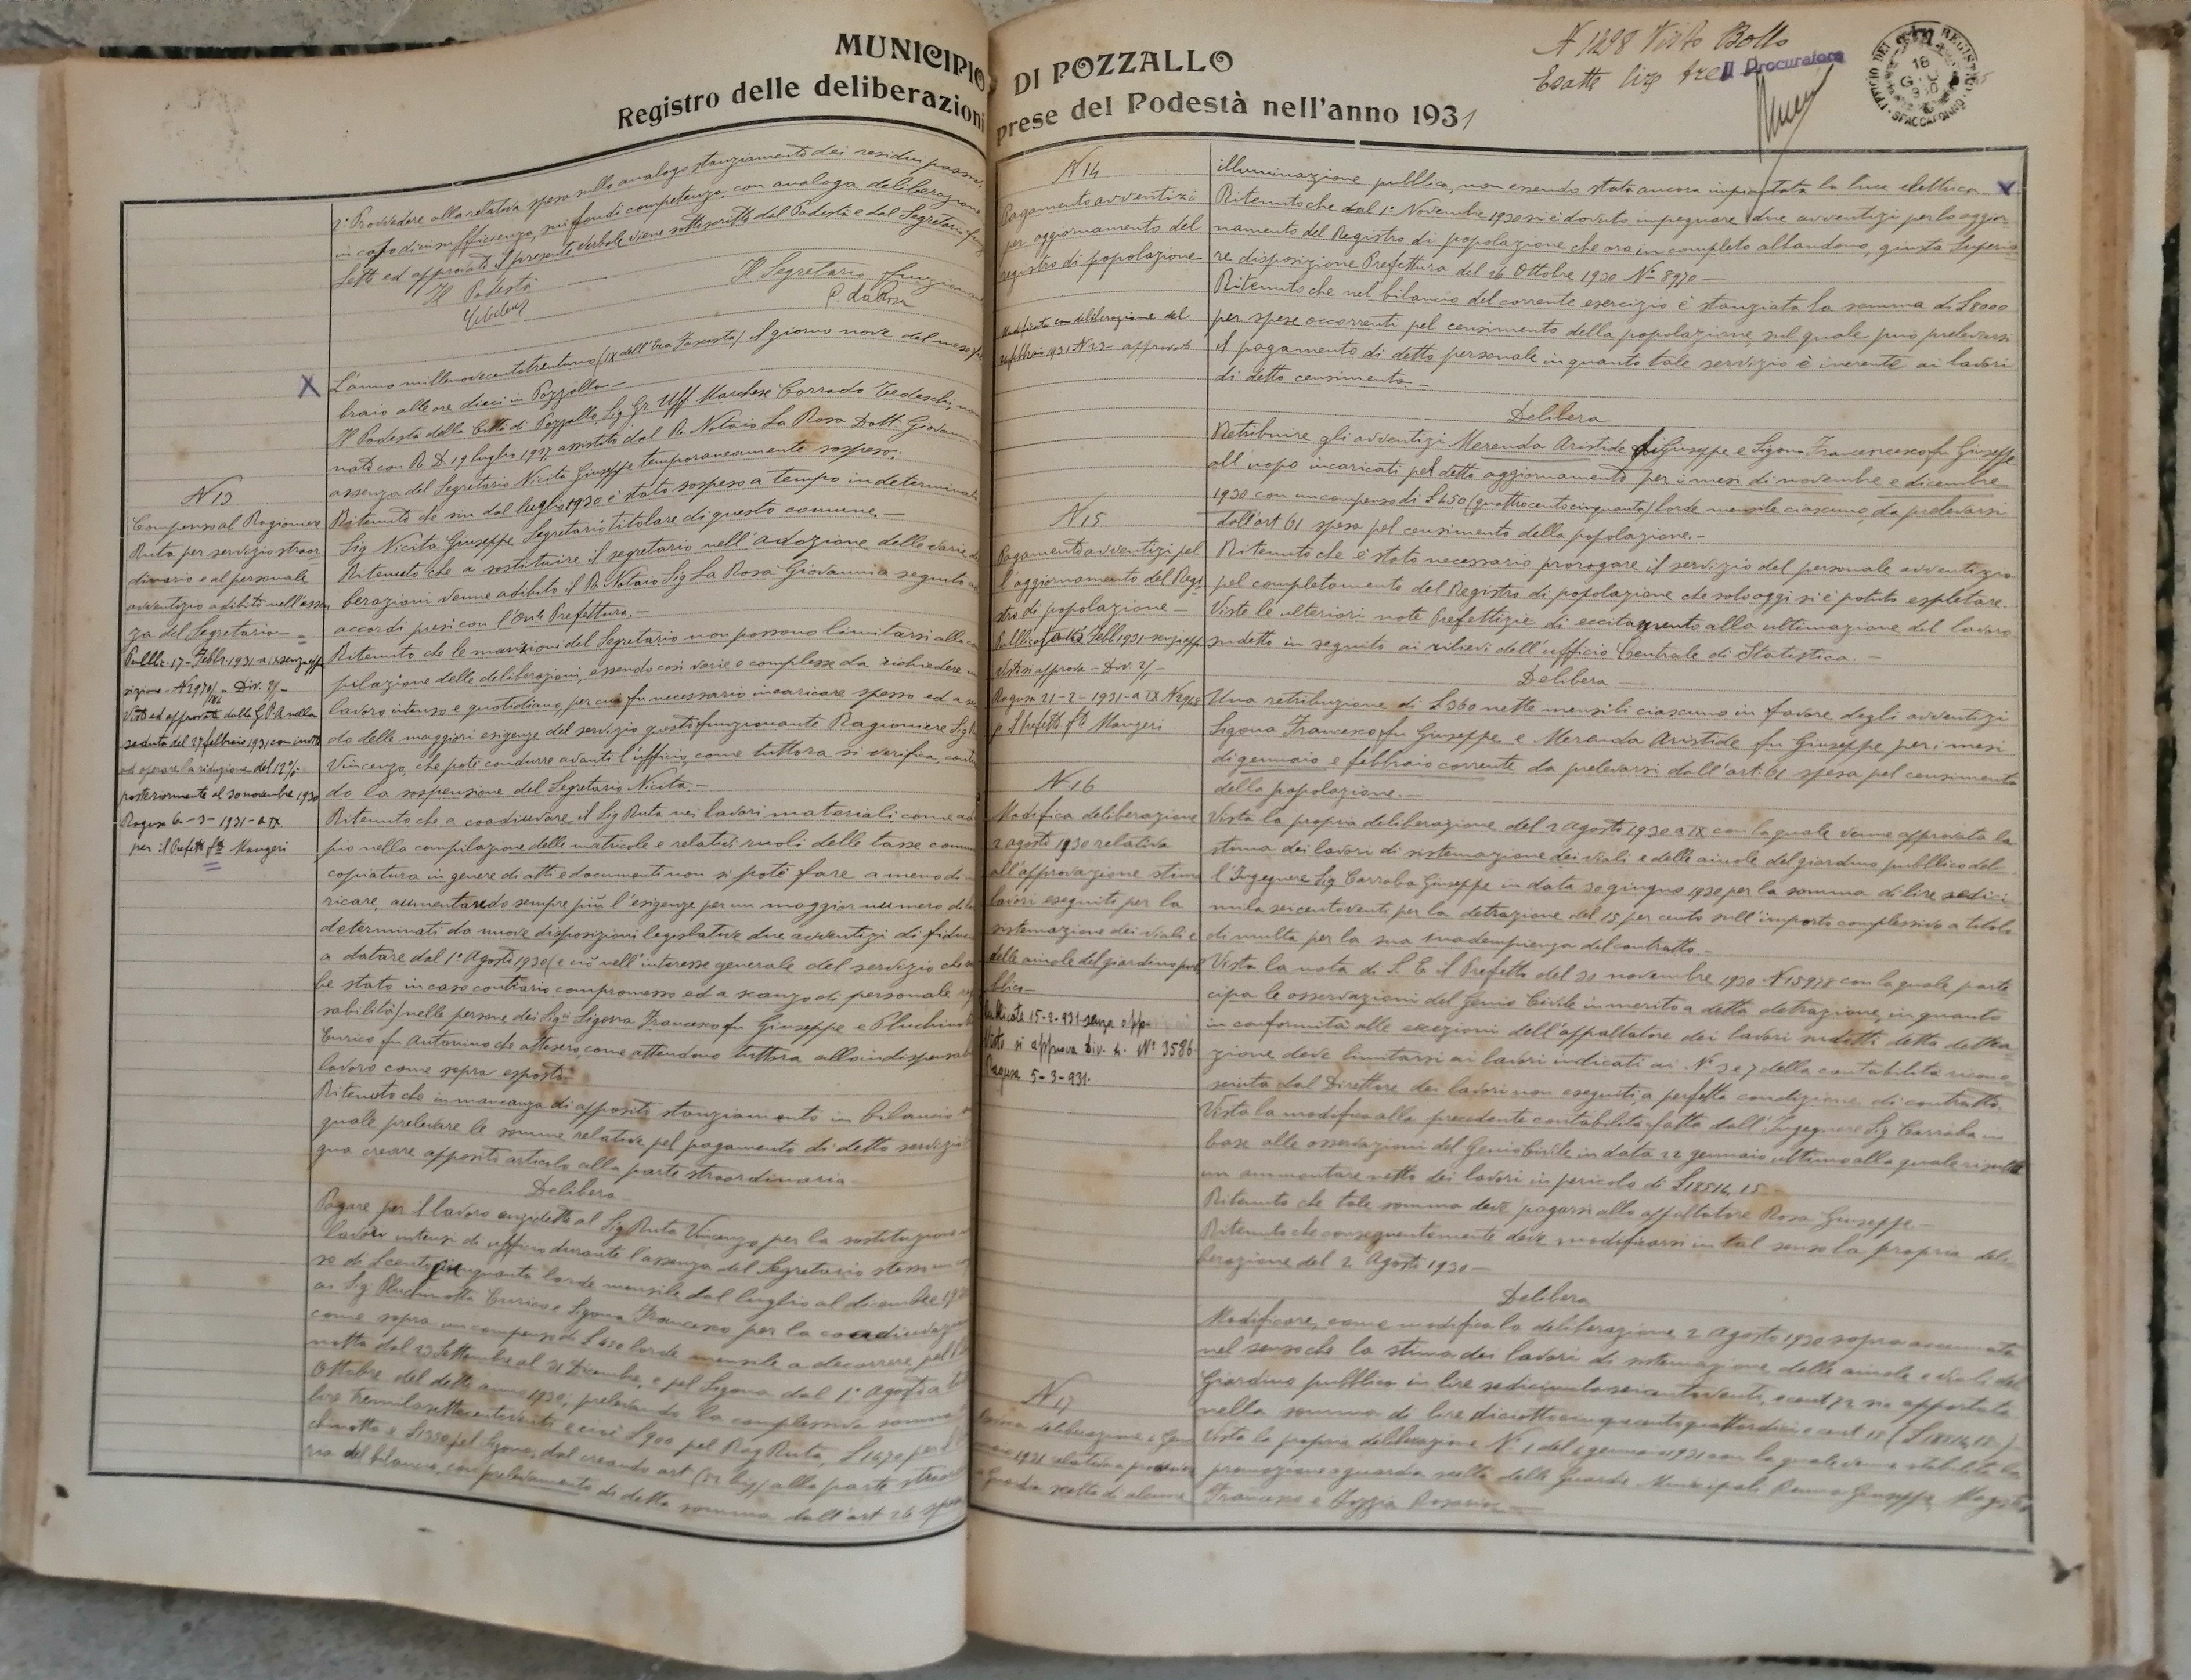 MUNICIPIO DI POZZALLO
Registro delle deliberazioni prese del Podestà nell'anno 1931
N 1298 Visto Bollo
Esatte lire tre
Il Procuratore
2° Provvedere alla relativa spesa sullo analogo stanziamento dei residui passivi
in caso di insufficienza, sui fondi di competenza con analoga deliberazione
Letto ed approvato il presente verbale viene sottoscritto dal Podestà e dal Segretario
Il Podestà
Il Segretario funzionante
L'anno millenovecentotrentuno (IX dell'Era Fascista) il giorno nove del mese
braio alle ore dieci in Pozzallo.-
Il Podestà della Città di Pozzallo Sig. Gr. Uff. Marchese Corrado Tedeschi,
nato con R. D. 19 luglio 1927, assistito dal R. Notaio La Rosa Dott. Giovanni
assenza del Segretario Nicita Giuseppe temporaneamente sospeso:
N 13
Compenso al Ragioniere
Ruta per servizio straor
dinario e al personale
avventizio adibito nell'assen
za del Segretario
Pubbl. 17- Febbr. 1931 a IX senza oppo
sizione - N 2970/ - Div. 2/-
Visto ed approvato dalla G.P.A. nella
seduta del 27 febbraio 1931 con invito
ad operare la riduzione del 12%
posteriormente al 30 novembre 1930
Ragusa 6-3-1931-a IX
per il Prefetto fto Mangeri
Ritenuto che sin dal luglio 1930 è stato sospeso a tempo indeterminato
Sig Nicita Giuseppe Segretario titolare di questo comune.-
Ritenuto che a sostituire il segretario nell'adozione delle varie
berazioni venne adibito il R. Notaio Sig La Rosa Giovanni a seguito
accordi presi con l'On.le Prefettura.-
Ritenuto che le mansioni del Segretario non possono limitarsi alla
pilazione delle deliberazioni, essendo così varie e complesse da richiedere
lavoro intenso e quotidiano, per cui fu necessario incaricare spesso ed a
do delle maggiori esigenze del servizio questo funzionante Ragioniere Sig.
Vincenzo, che poté condurre avanti l'ufficio, come tuttora si verifica,
do la sospensione del Segretario Nicita.-
Ritenuto che a coadiuvare il Sig Ruta nei lavori materiali come
pio nella compilazione delle matricole e relativi ruoli delle tasse
copiatura in genere di atti e documenti non si poté fare a meno di
ricare, aumentando sempre più l'esigenze per un maggior numero di
determinati da nuove disposizioni legislative due avventizi di fiducia
a datare dal 1° Agosto 1930 (e ciò nell'interesse generale del servizio che
be stato in caso contrario compromesso ed a scanzo di personale
sabilità) nelle persone dei Sig.i Sigona Francesco fu Giuseppe e Pluchinotta
Enrico fu Antonino che attesero come attendono tuttora allo indispensabile
lavoro come sopra esposto
Ritenuto che in mancanza di apposito stanziamento in bilancio
quale prelevare le somme relative pel pagamento di detto servizio
gna creare apposito articolo alla parte straordinaria
Delibera
Pagare per il lavoro anzidetto al Sig Ruta Vincenzo per la sostituzione
lavori intensi di ufficio durante l'assenza del Segretario stesso
so di £ cento cinquanta lorde mensile dal luglio al dicembre 1930
ai Sig. Pluchinotta Enrico e Sigona Francesco per la coadiuvazione
come sopra un compenso di £ 450 lorde mensile a decorrere pel
notta dal 23 Settembre al 31 Dicembre, e pel Sigona dal 1° Agosto a
Ottobre del detto anno 1930; prelevando la complessiva somma
lire tremilasettecentoventi e cioè £ 900 pel Rag Ruta, £ 1470 per
chinotta e £ 1350 pel Sigona, dal creando art (52 bis) alla parte straor
ria del bilancio, con prelevamento di detta somma dall'art 26 spese
N 14
Pagamento avventizi
per aggiornamento del
registro di popolazione
Modificata con deliberazione del
febbraio 1931 N 23 - approvata
illuminazione pubblica, non essendo stata ancora impiantata la luce elettrica
Ritenuto che dal 1° Novembre 1930 si è dovuto impegnare due avventizi per lo aggior=
namento del Registro di popolazione che ora in completo abbandono, giusta Superio=
re disposizione Prefettura del 26 Ottobre 1930 N° 8970 -
Ritenuto che nel bilancio del corrente esercizio è stanziata la somma di £ 8000
per spese occorrenti pel censimento della popolazione, sul quale può prelevarsi
il pagamento di detto personale in quanto tale servizio è inerente ai lavori
di detto censimento.-
Delibera
Retribuire gli avventizi Merenda Aristide fu Giuseppe e Sigona Francesco fu Giuseppe
all'uopo incaricati pel detto aggiornamento per i mesi di novembre e dicembre
1930 con un compenso di £ 450 (quattrocentocinquanta) lorde mensile ciascuno, da prelevarsi
dall'art 61 spesa pel censimento della popolazione.-
N 15
Pagamento avventizi pel
l'aggiornamento del Regi
stro di popolazione -
Visto si approva - Div. 2/-
Ragusa 21-2-1931-a IX N 2968
p. Il Prefetto fto Mangeri
Ritenuto che è stato necessario prorogare il servizio del personale avventizio
pel completamento del Registro di popolazione che solo oggi si è potuto espletare.
Viste le ulteriori note Prefettizie di eccitamento alla ultimazione del lavoro
sudetto in seguito ai rilievi dell'ufficio Centrale di Statistica.-
Delibera
Una retribuzione di £ 360 nette mensili ciascuno in favore degli avventizi
Sigona Francesco fu Giuseppe e Merenda Aristide fu Giuseppe per i mesi
di gennaio e febbraio corrente da prelevarsi dall'art. 61 spesa pel censimento
della popolazione.-
N. 16
Modifica deliberazione
2 agosto 1930 relativa
all'approvazione stima
lavori eseguiti per la
sistemazione dei viali e
delle aiuole del giardino pub
blico
Pubblicata 15-2-931 senza opp.
Visto si approva Div. 4. N° 3586.
Ragusa 5-3-931.
Vista la propria deliberazione del 2 agosto 1930 a IX con la quale venne approvata la
stima dei lavori di sistemazione dei viali e delle aiuole del giardino pubblico del=
l'Ingegnere Sig Carraba Giuseppe in data 30 giugno 1930 per la somma di lire sedici
mila seicentoventi per la detrazione del 15 per cento sull'importo complessivo a titolo
di multa per la sua inadempienza del contratto.-
Vista la nota di S. E. il Prefetto del 30 novembre 1930 N 15978 con la quale parte
cipa le osservazioni del Genio Civile in merito a detta detrazione, in quanto
in conformità alle eccezioni dell'appaltatore dei lavori sudetti detta detra=
zione deve limitarsi ai lavori indicati ai N° 3 e 7 della contabilità ricono=
sciuta dal Direttore dei lavori non eseguiti a perfetta condizione di contratto.
Vista la modifica alla precedente contabilità fatta dall'Ingegnere Sig Carraba in
base alle osservazioni del Genio Civile in data 22 gennaio ultimo alla quale risulta
un ammontare netto dei lavori in pericolo di £ 18514,15 -
Ritenuto che tale somma deve pagarsi allo appaltatore Rosa Giuseppe.-
Ritenuto che conseguentemente deve modificarsi in tal senso la propria deli=
berazione del 2 Agosto 1930 -
Delibera
Modificare, come modifica la deliberazione 2 Agosto 1930 sopra accennata
nel senso che la stima dei lavori di sistemazione delle aiuole e viali del
Giardino pubblico in lire sedicimilaseicentoventi, e cent 72 sia apportata
nella somma di lire diciottocinquecentoquattordici e cent 15 (£ 18514,15)-
N 17
deliberazione 6 Gen
naio 1931 relativa a promozione
a Guardia scelta di alcune
Vista la propria deliberazione N° 1 del 6 gennaio 1931 con la quale venne stabilita la
promozione a guardia scelta delle Guardie Municipali Giuseppe,
Francesco e Rosario